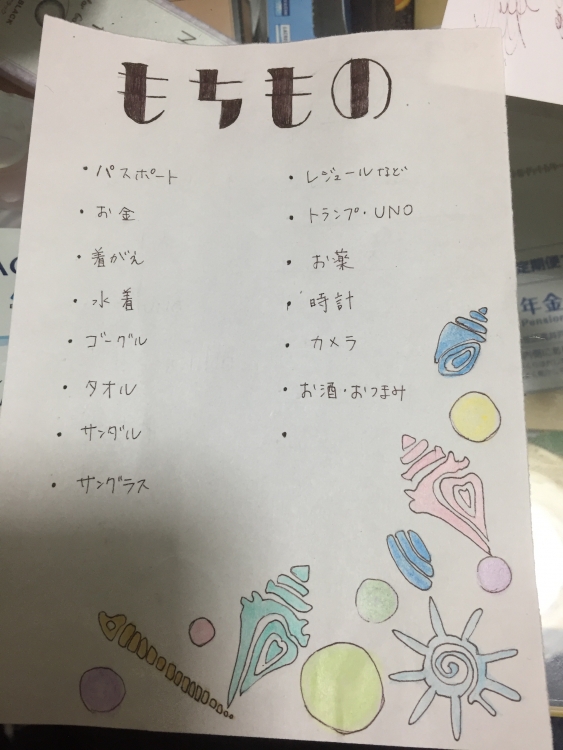 もちもの
・パスポート
・お金
・着がえ
・水着
・ゴーグル
・タオル
・サンダル
・サングラス
・レジュールなど
・トランプ・UNO
・お薬
・時計
・カメラ
・お酒・おつまみ
・
定期便
年金
Pension